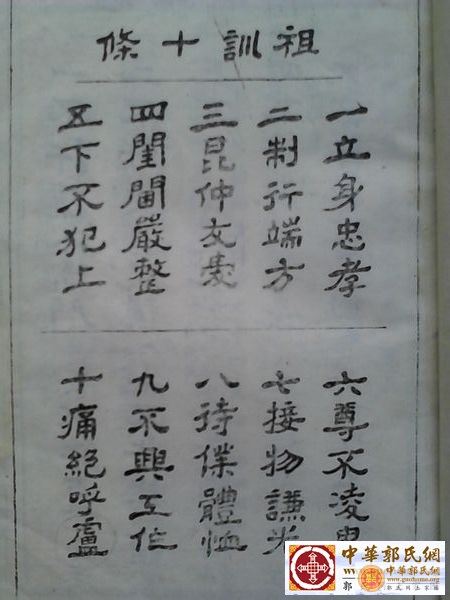 祖訓十條
一立身忠孝
二制行端方
三昆仲友愛
四閨閫嚴整
五下不犯上
六尊不凌卑
七接物謙光
八待僕體恤
九不興
十痛絕呼盧
中華郭氏網